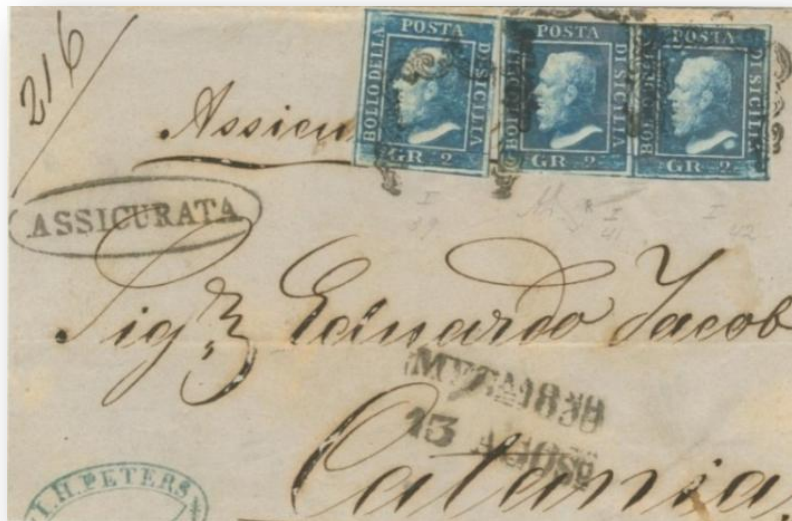 216
BOLLO DELLA POSTA DI SICILIA GR 2
BOLLO DELLA POSTA DI SICILIA GR 2
BOLLO DELLA POSTA DI SICILIA GR 2
I I I
41 42
ASSICURATA
Sigr Eduardo Jacob
13 AGOS
Catania
H. PETERS